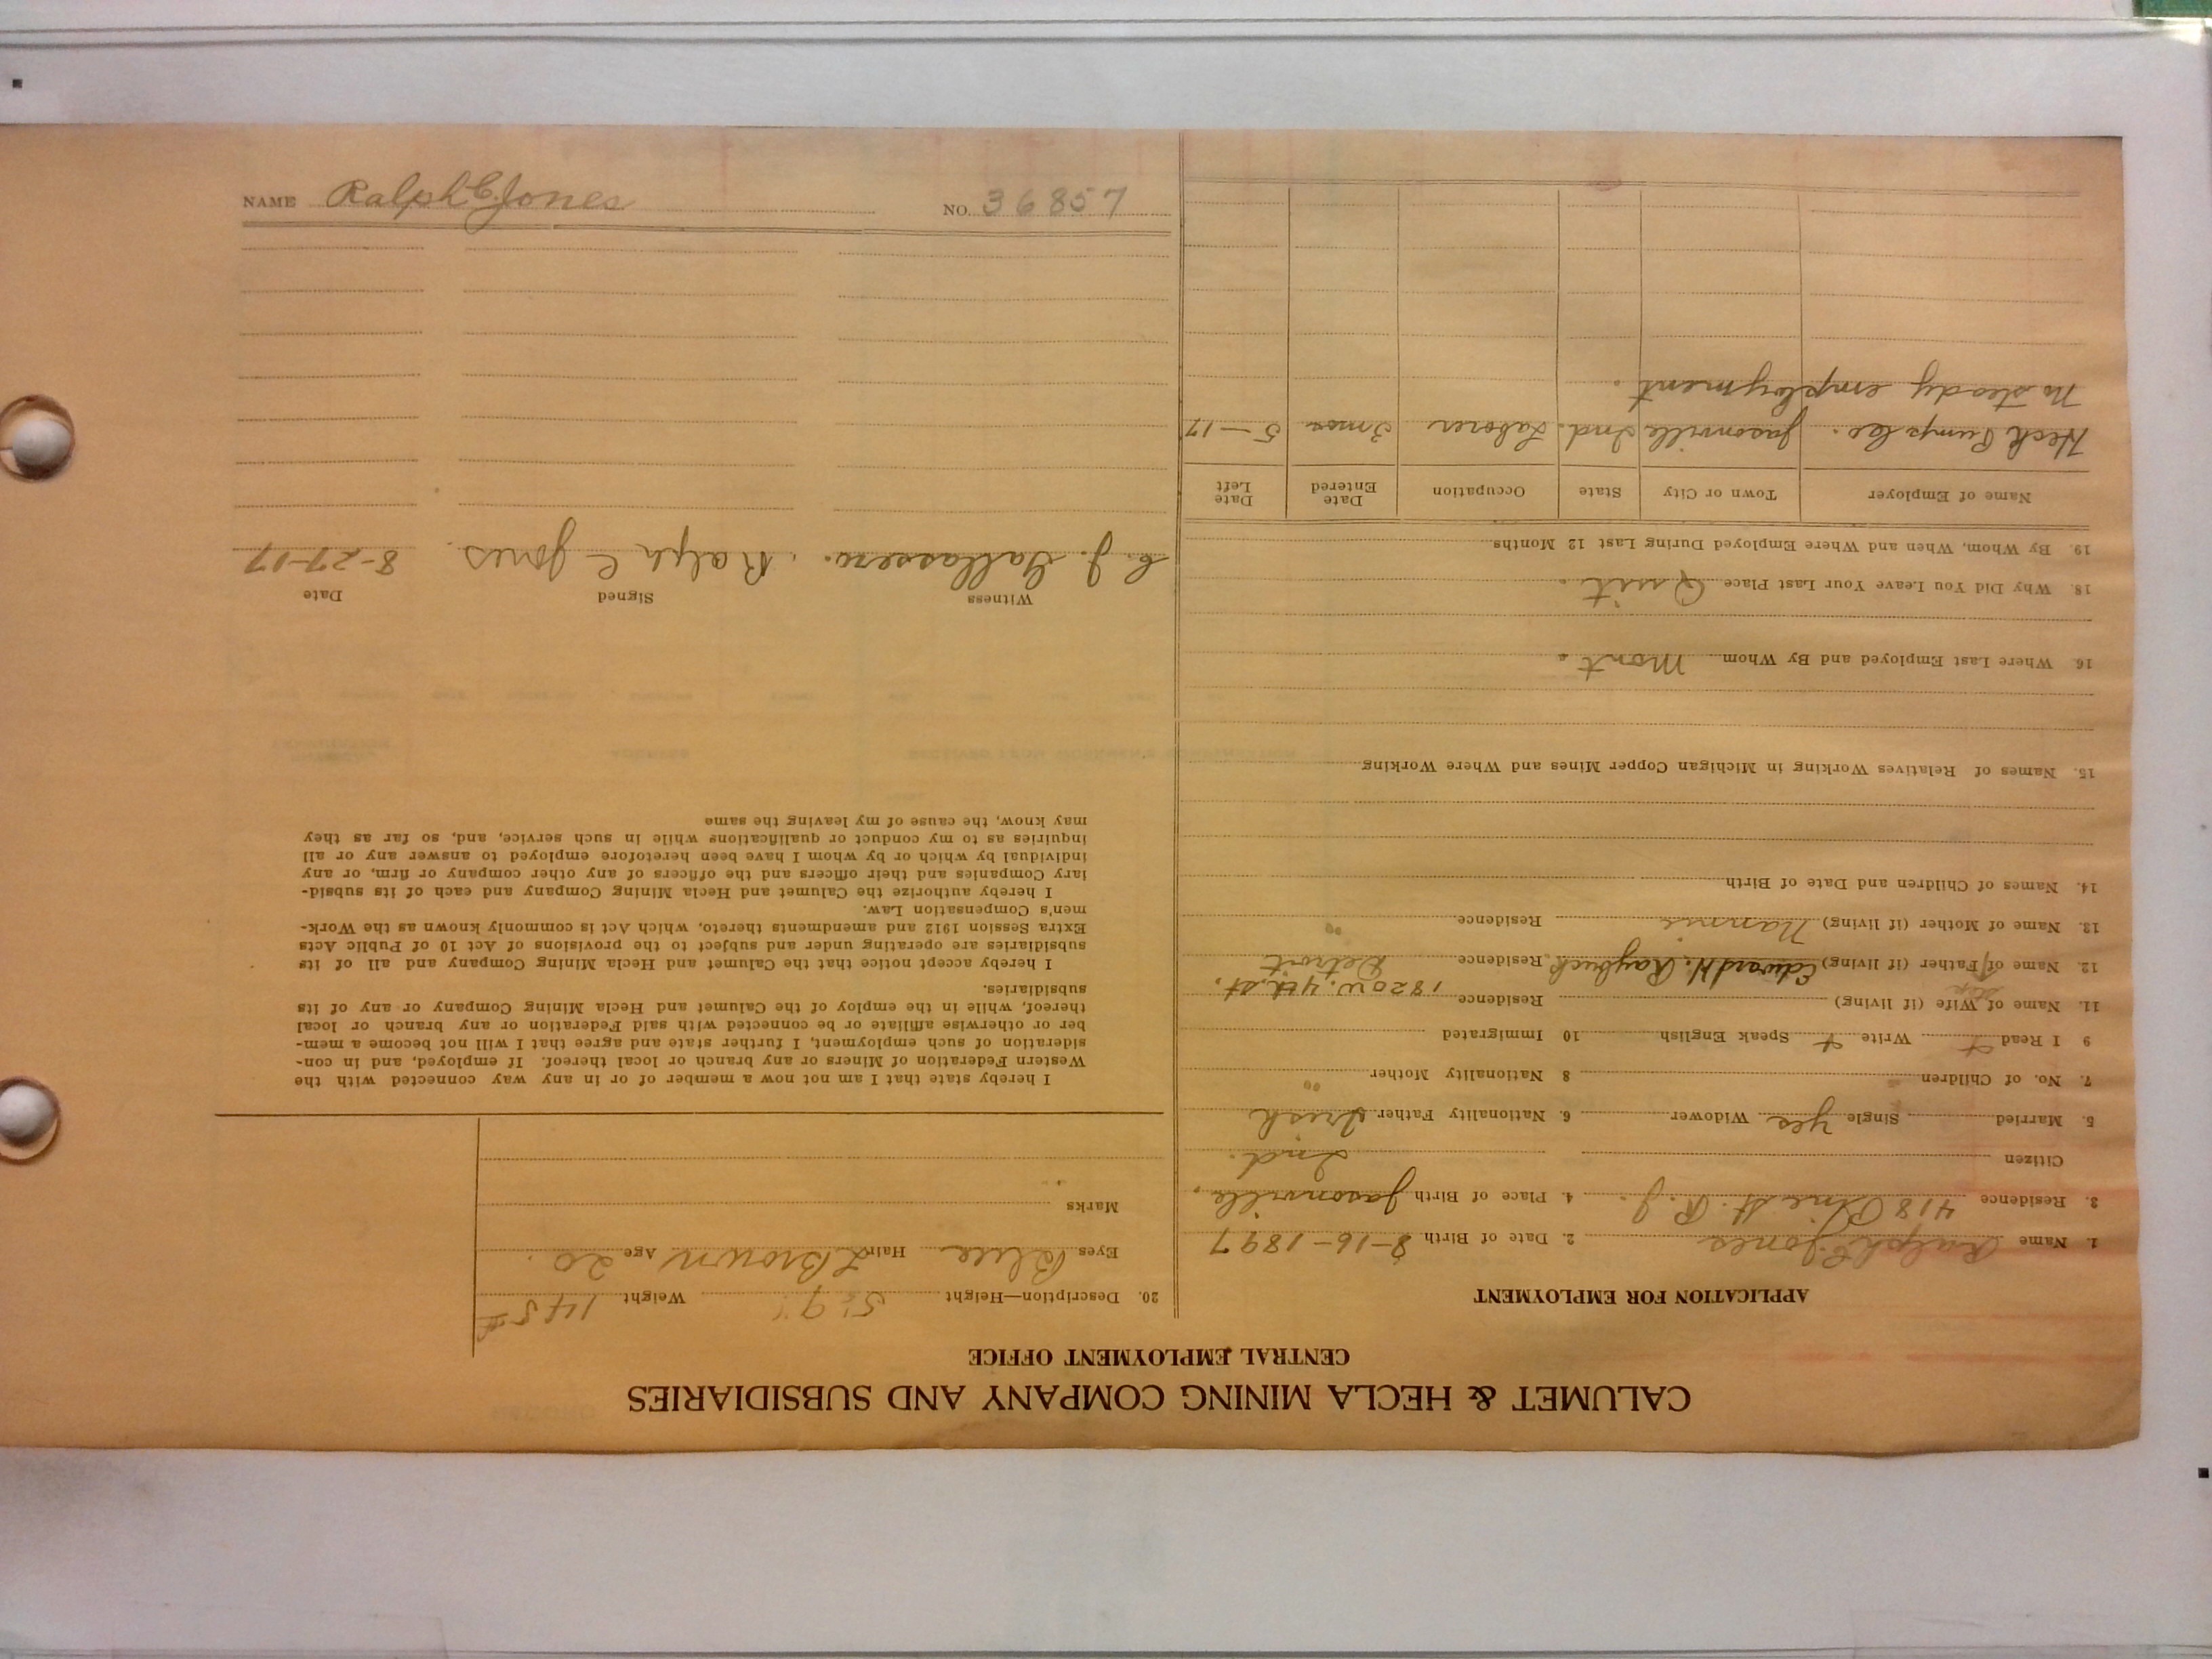 CALUMET & HECLA MINING COMPANY AND SUBSIDIARIES
CENTRAL EMPLOYMENT OFFICE
APPLICATION FOR EMPLOYMENT
1. Name Ralph E. Jones 2. Date of Birth 8-16-1897
3. Residence 418 Pine St. R. J. 4. Place of Birth Jasonville,
Citizen Ind.
5. Married Single yes Widower 6. Nationality Father Irish
7. No. of Children 8 Nationality Mother "
9 I Read + Write + Speak English 10 Immigrated
11. Name of Wife (if living) Residence 1820 W. 4th St.
12. Name of Step Father (if living) Edward H. Raybuck Residence Detroit
13. Name of Mother (if living) Nannie Residence "
14. Names of Children and Date of Birth
15. Names of Relatives Working in Michigan Copper Mines and Where Working
16. Where Last Employed and By Whom Mont.
18. Why Did You Leave Your Last Place Quit.
19. By Whom, When and Where Employed During Last 12 Months
Name of Employer Town or City State Occupation Date Entered Date Left
Heck Pump Co. Jasonville Ind. Laborer 3 mos 5-17
No steady employment.
20. Description—Height 5' 9" Weight 145#
Eyes Blue Hair L Brown Age 20.
Marks
I hereby state that I am not now a member of or in any way connected with the
Western Federation of Miners or any branch or local thereof. If employed, and in con-
sideration of such employment, I further state and agree that I will not become a mem-
ber or otherwise affiliate or be connected with said Federation or any branch or local
thereof, while in the employ of the Calumet and Hecla Mining Company or any of its
subsidiaries.
I hereby accept notice that the Calumet and Hecla Mining Company and all of its
subsidiaries are operating under and subject to the provisions of Act 10 of Public Acts
Extra Session 1912 and amendments thereto, which Act is commonly known as the Work-
men's Compensation Law.
I hereby authorize the Calumet and Hecla Mining Company and each of its subsid-
iary Companies and their officers and the officers of any other company or firm, or any
individual by which or by whom I have been heretofore employed to answer any or all
inquiries as to my conduct or qualifications while in such service, and, so far as they
may know, the cause of my leaving the same
Witness Signed Date
C. J. Gallassero. Ralph E Jones. 8-27-17
NAME Ralph E. Jones NO. 36857